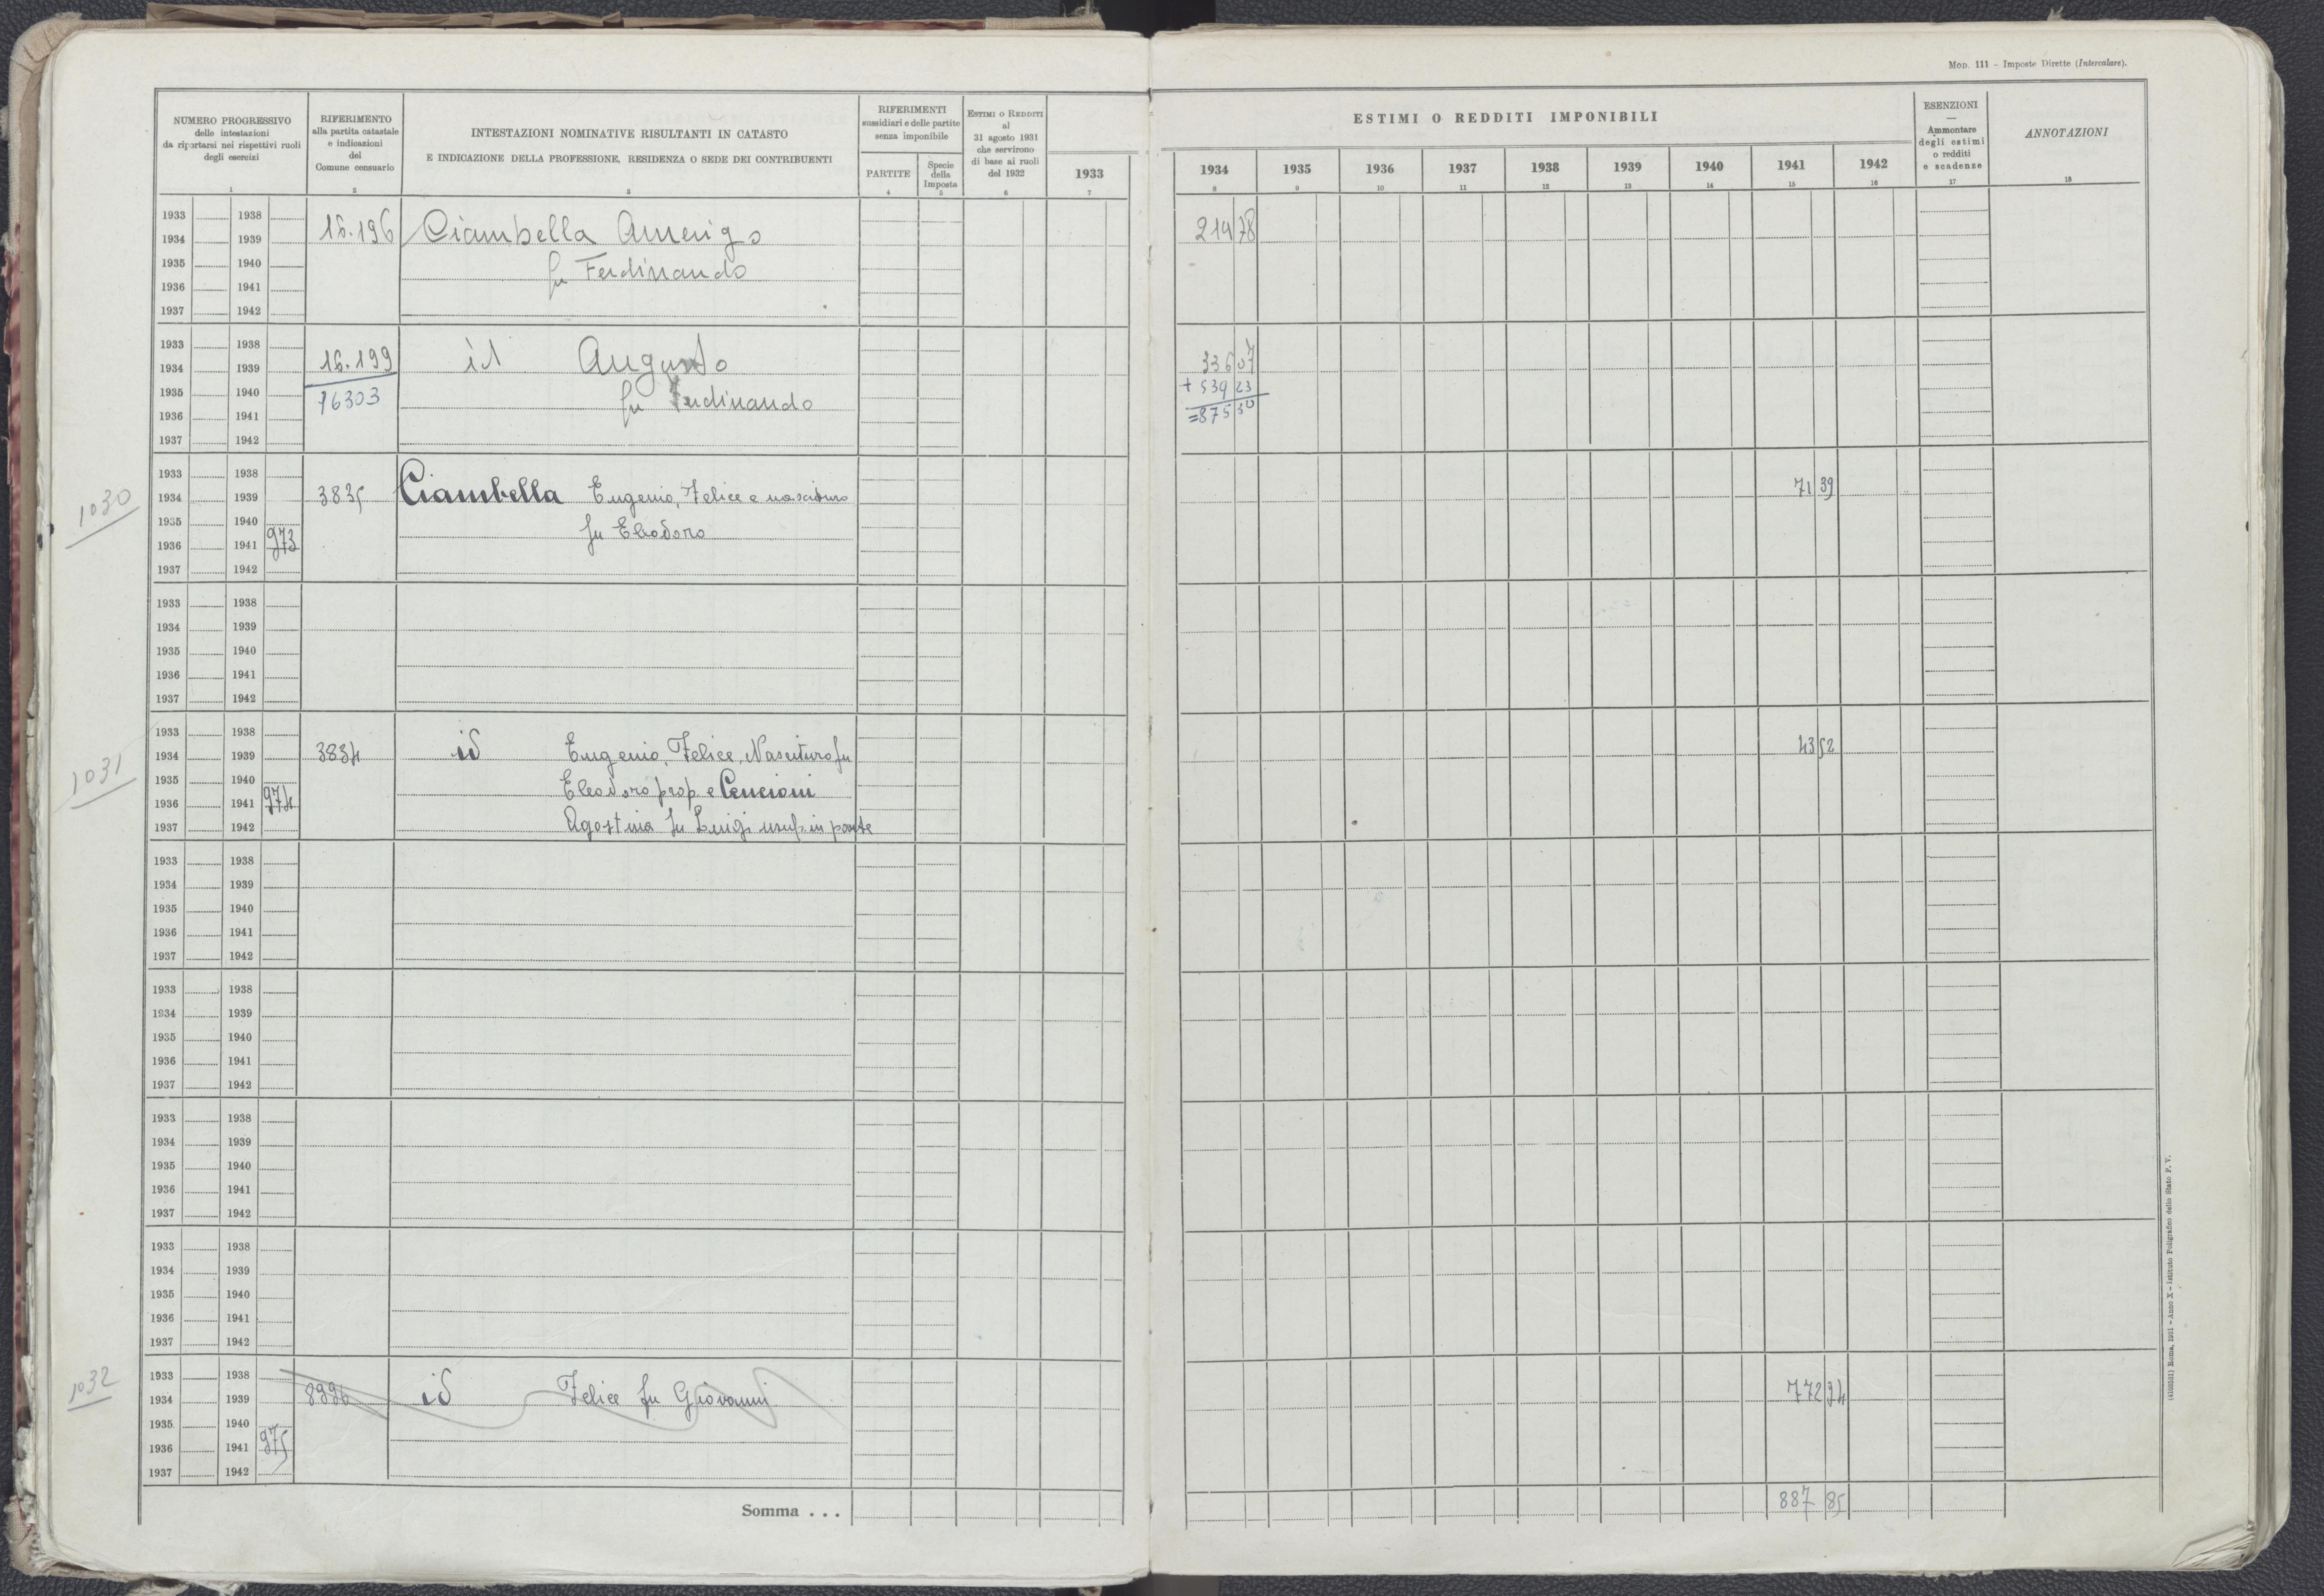 Mod. 111 – Imposte Dirette (Intercalare).
NUMERO PROGRESSIVO
delle intestazioni
da riportarsi nei rispettivi ruoli
degli esercizi
1
RIFERIMENTO
alla partita catastale
e indicazioni
del
Comune censuario
2
INTESTAZIONI NOMINATIVE RISULTANTI IN CATASTO
E INDICAZIONE DELLA PROFESSIONE, RESIDENZA O SEDE DEI CONTRIBUENTI
3
RIFERIMENTI
sussidiari e delle partite
senza imponibile
PARTITE
4
Specie
della
Imposta
5
ESTIMI O REDDITI
al
31 agosto 1931
che servirono
di base ai ruoli
del 1932
6
ESTIMI O REDDITI IMPONIBILI
1933 1934 1935 1936 1937 1938 1939 1940 1941 1942
7 8 9 10 11 12 13 14 15 16
ESENZIONI
—
Ammontare
degli estimi
o redditi
e scadenze
17
ANNOTAZIONI
18
1933 1938
1934 1939 16.196 Ciambella Amerigo 214 78
1935 1940 fu Ferdinando
1936 1941
1937 1942
1933 1938
1934 1939 16.199 id Augusto 336 07
1935 1940 16303 fu Ferdinando + 539 23
1936 1941 = 875 30
1937 1942
1933 1938
1030 1934 1939 3835 Ciambella Eugenio, Felice e nascituro 71 39
1935 1940 fu Eleodoro
1936 1941 973
1937 1942
1933 1938
1934 1939
1935 1940
1936 1941
1937 1942
1933 1938
1031 1934 1939 3834 id Eugenio, Felice, Nascituro fu 43 52
1935 1940 Eleodoro prop. e Cencioni
1936 1941 974
1937 1942 Agostina fu Luigi usuf. in parte
1933 1938
1934 1939
1935 1940
1936 1941
1937 1942
1933 1938
1934 1939
1935 1940
1936 1941
1937 1942
1933 1938
1934 1939
1935 1940
1936 1941
1937 1942
1933 1938
1934 1939
1935 1940
1936 1941
1937 1942
1933 1938
1032 1934 1939 id Felice fu Giovanni 772 94
1935 1940
1936 1941 975
1937 1942
Somma . . . 887 85
(4103551) Roma, 1931 – Anno X – Istituto Poligrafico dello Stato P. V.